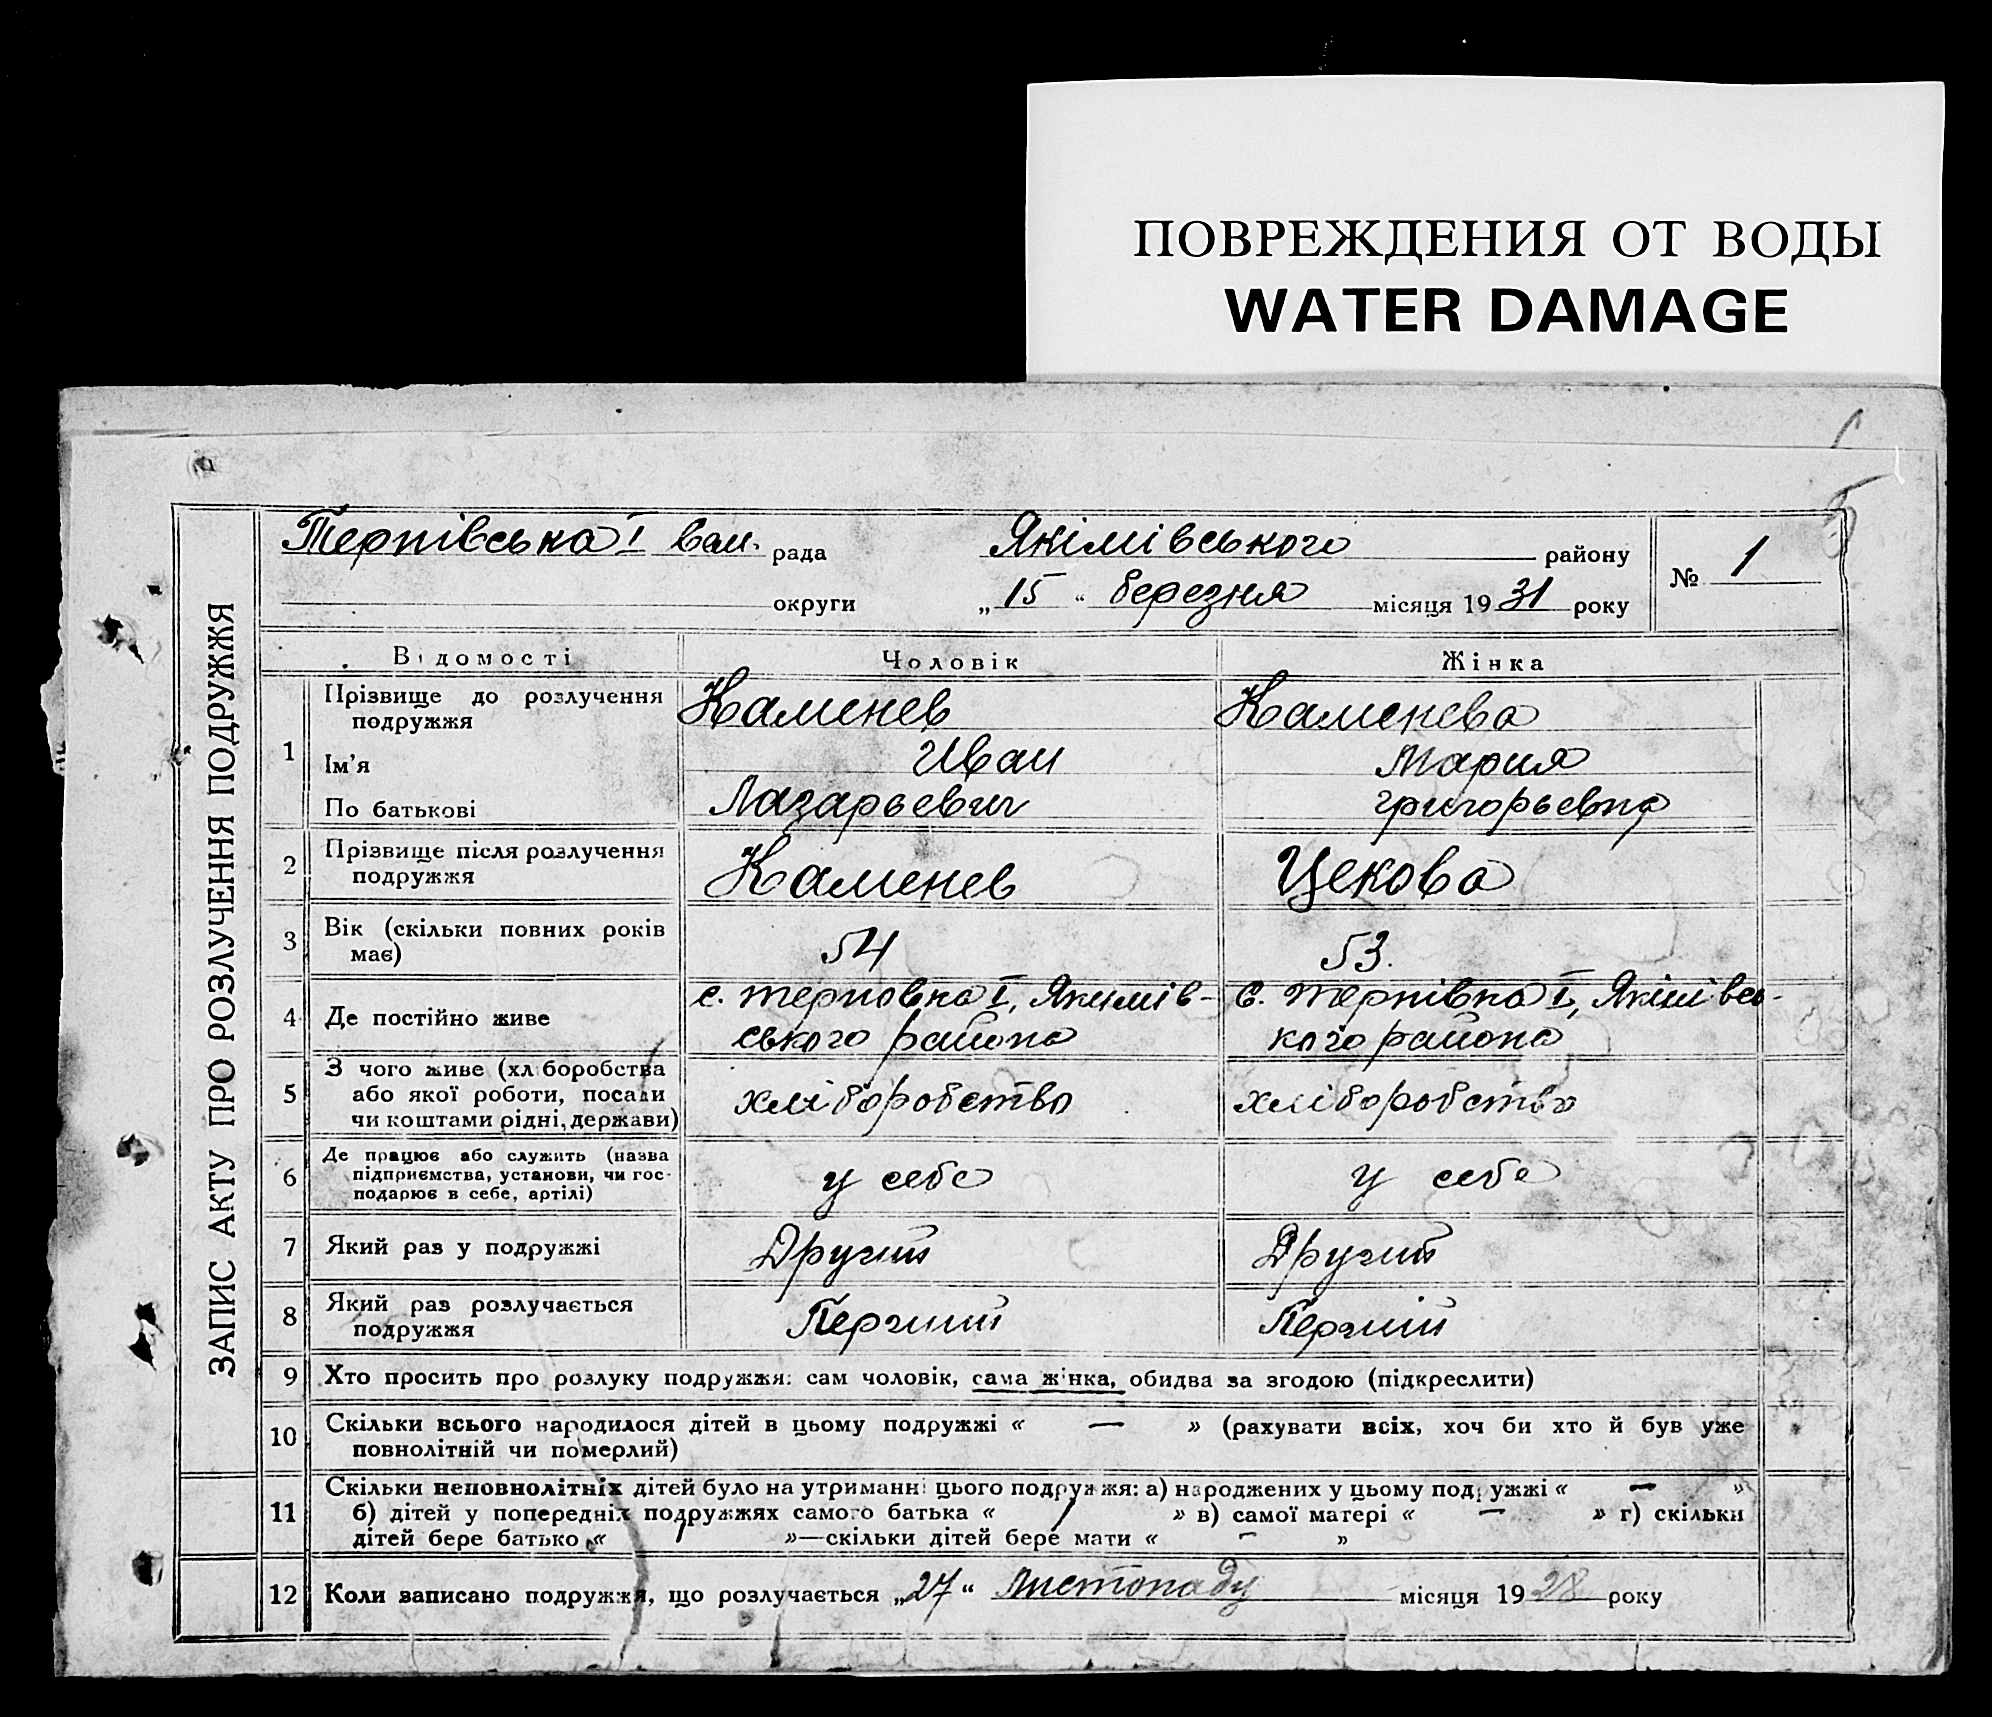 ПОВРЕЖДЕНИЯ ОТ ВОДЫ
WATER DAMAGE
Терпівська I вол. рада Якімівського району № 1
округи „15“ березня місяця 1931 року
ЗАПИС АКТУ ПРО РОЗЛУЧЕННЯ ПОДРУЖЖЯ
Відомості Чоловік Жінка
1 Прізвище до розлучення подружжя Каменев Каменева
Ім'я Иван Мария
По батькові Лазарьевич Григорьевна
2 Прізвище після розлучення подружжя Каменев Цекова
3 Вік (скільки повних років має) 54 53.
4 Де постійно живе с. Терповка I, Якимів- с. Терпівка I, Якімівсь-
ського района кого района
5 З чого живе (хліборобства або якої роботи, посади чи коштами рідні, держави) хліборобство хліборобство
6 Де працює або служить (назва підприємства, установи, чи господарює в себе, артілі) у себе у себе
7 Який раз у подружжі Другий Другий
8 Який раз розлучається подружжя Перший Перший
9 Хто просить про розлуку подружжя: сам чоловік, сама жінка, обидва за згодою (підкреслити)
10 Скільки всього народилося дітей в цьому подружжі « — » (рахувати всіх, хоч би хто й був уже
повнолітній чи померлий)
11 Скільки неповнолітніх дітей було на утриманні цього подружжя: а) народжених у цьому подружжі « — »
б) дітей у попередніх подружжях самого батька « 1 » в) самої матері « — » г) скільки
дітей бере батько « 1 »—скільки дітей бере мати « — »
12 Коли записано подружжя, що розлучається „27“ Листопаду місяця 1928 року